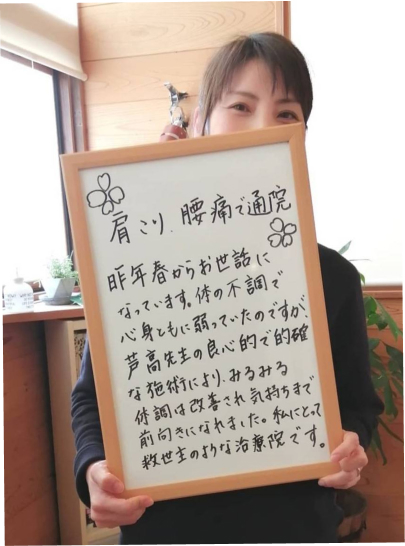 肩こり、腰痛で通院
昨年春からお世話に
なっています。体の不調で
心身ともに弱っていたのですが、
芦高先生の良心的で的確
な施術により、みるみる
体調は改善され気持ちまで
前向きになれました。私にとって
救世主のような治療院です。